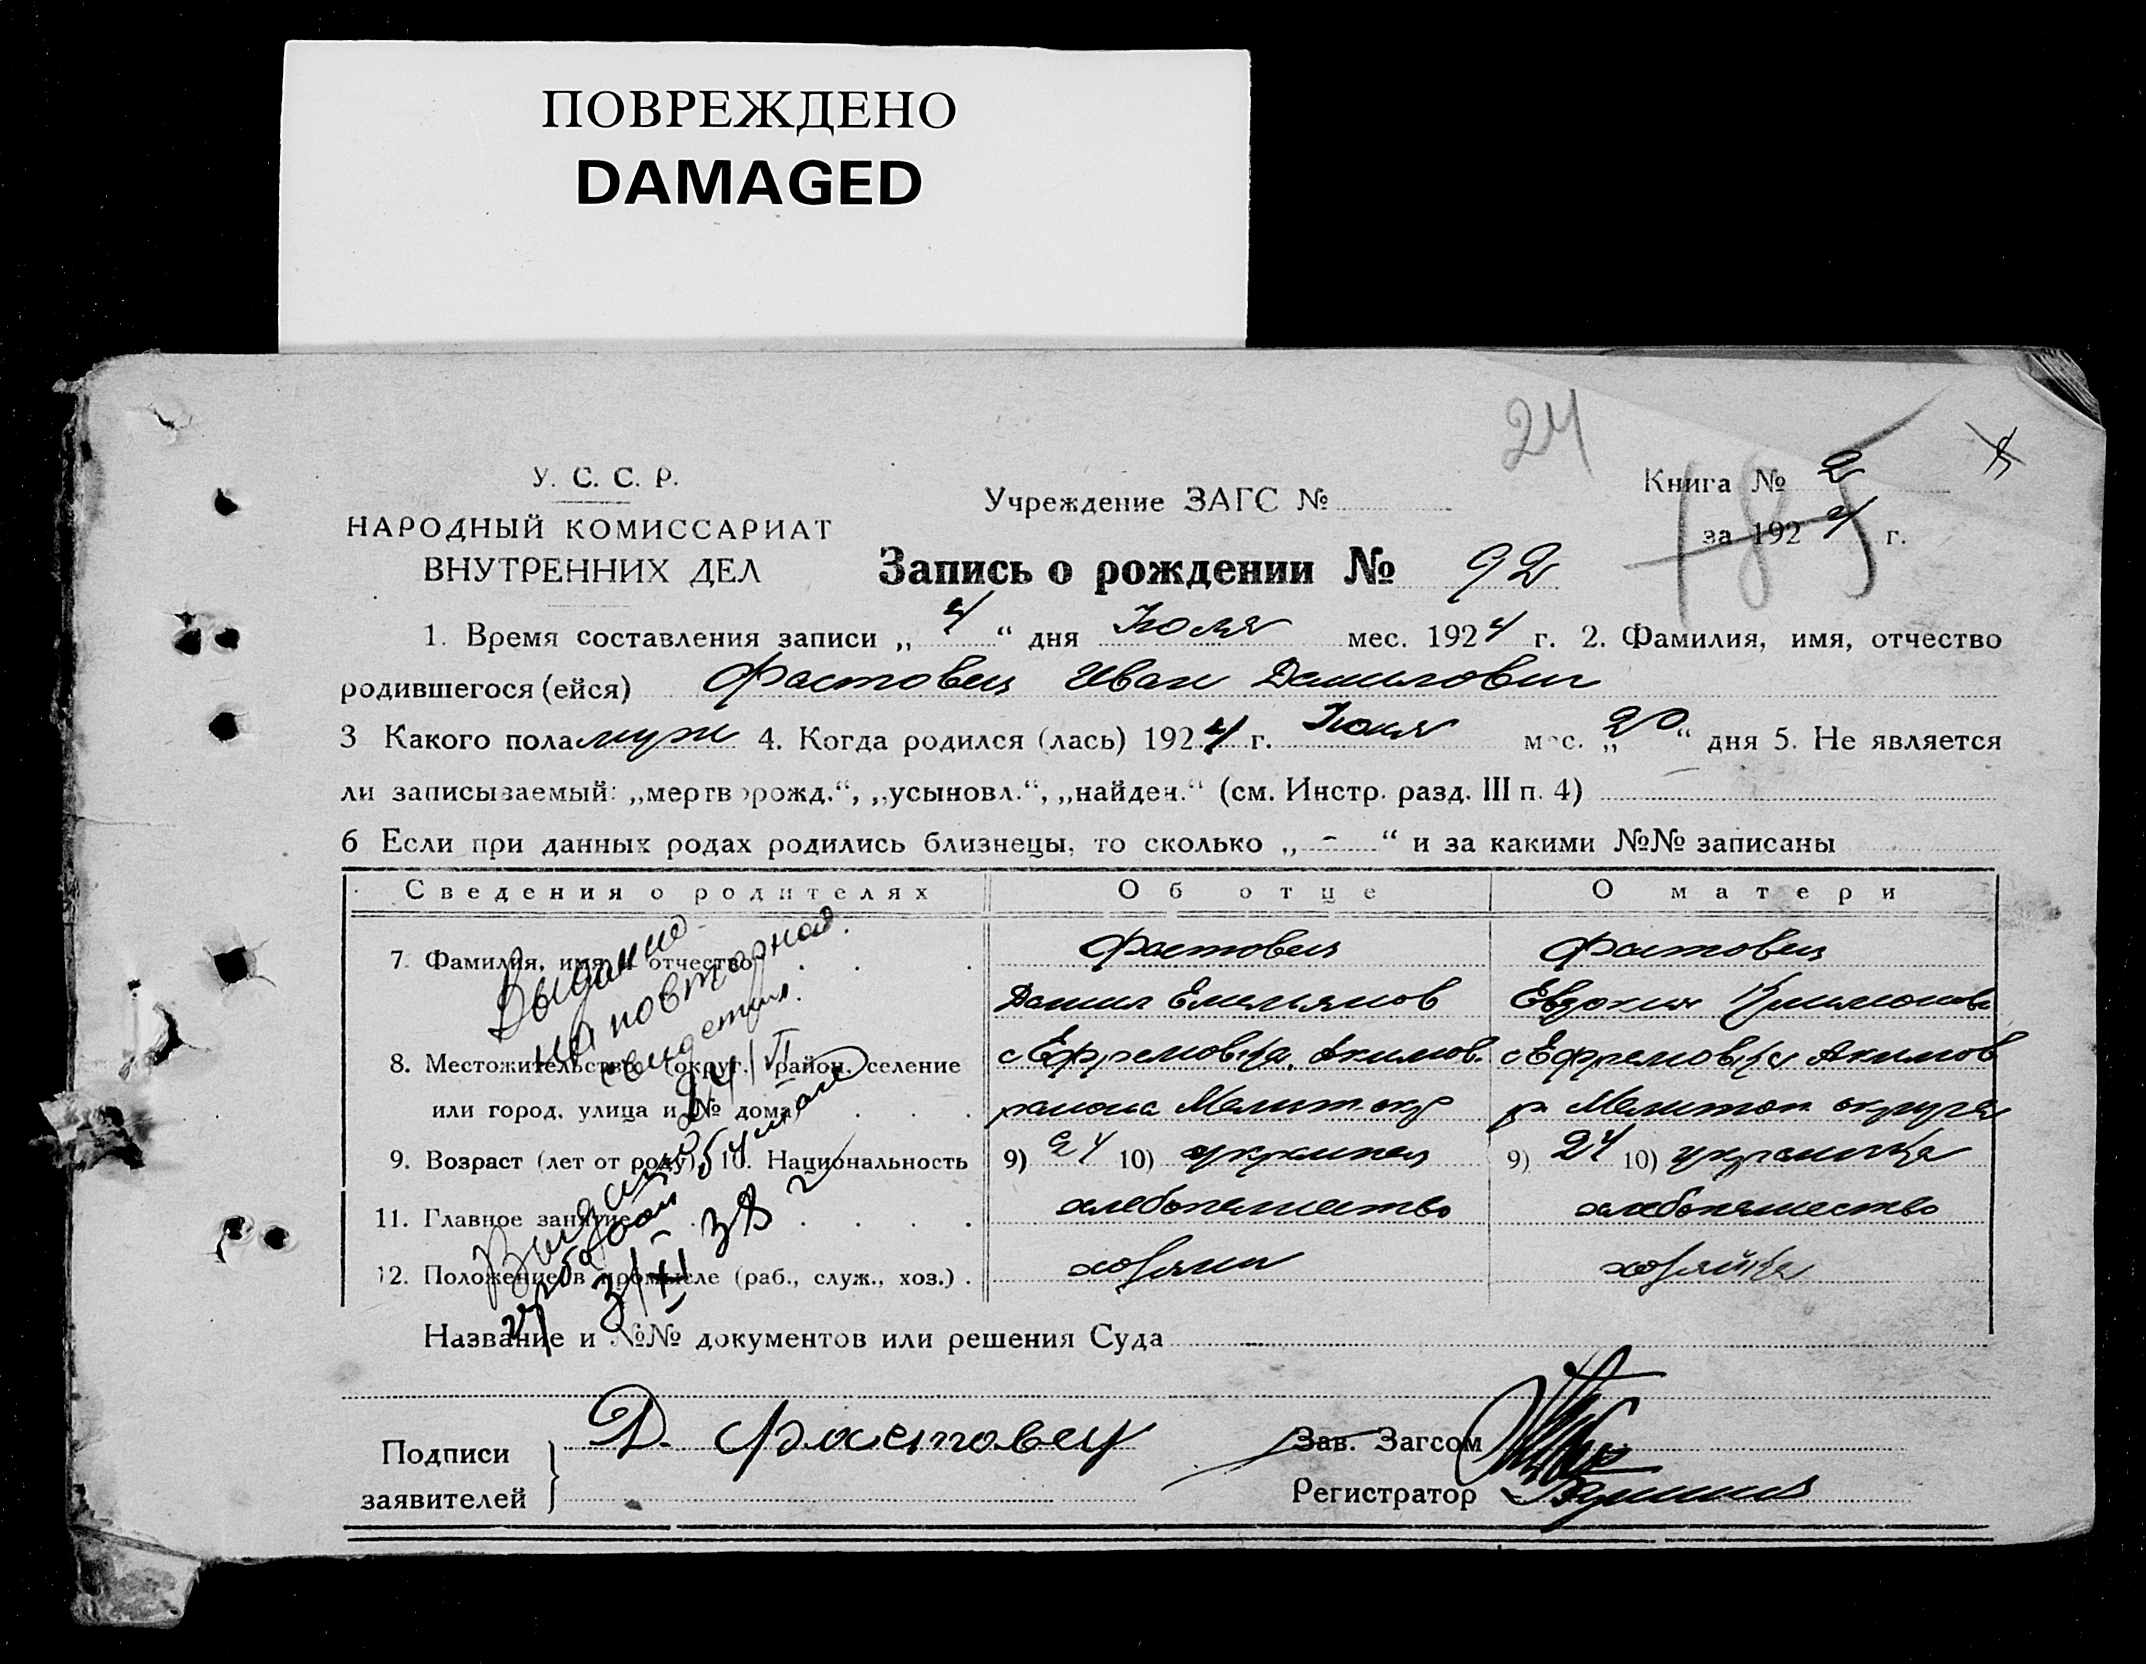 ПОВРЕЖДЕНО
DAMAGED
24
У. С. С. Р.
НАРОДНЫЙ КОМИССАРИАТ
ВНУТРЕННИХ ДЕЛ
Учреждение ЗАГС №
Книга № 2
за 1924 г.
185
Запись о рождении № 92
1. Время составления записи „4“ дня Июля мес. 1924 г. 2. Фамилия, имя, отчество
родившегося (ейся) Фастовец Иван Данилович
3 Какого пола муж 4. Когда родился (лась) 1924 г. Июня мес. „20“ дня 5. Не является
ли записываемый: „мертворожд.“, „усыновл.“, „найден.“ (см. Инстр. разд. III п. 4)
6 Если при данных родах родились близнецы, то сколько „-“ и за какими №№ записаны
Сведения о родителях Об отце О матери
7. Фамилия, имя и отчество Фастовец Фастовец
Данил Емельянов Евдокия
8. Местожительство (округ, район, селение с Ефремовка, Акимов. с Ефремовка Акимов
или город, улица и № дома) района Мелит. окр р. Мелитоп округа
9. Возраст (лет от роду) 10. Национальность 9) 24 10) украинец 9) 24 10) украинка
11. Главное занятие хлебопашество хлебопашество
12. Положение в промысле (раб., служ., хоз.) хозяин хозяйка
Выдано
на повторная
свидетел.
24/VI
Выдано
31/XII 38
Название и №№ документов или решения Суда
Подписи заявителей Д. Фастовец
Зав. Загсом
Регистратор